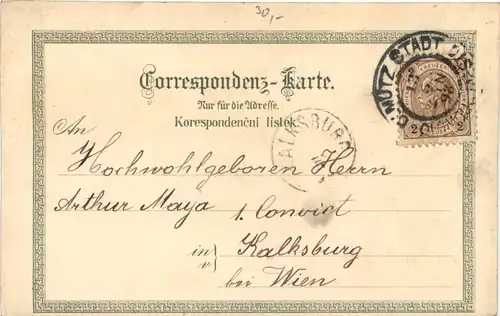 30,-
Correspondenz-Karte.
Nur für die Adresse.
Korespondenční lístek.
OLMÜTZ STADT
2 2
KALKSBURG
An
Hochwohlgeboren Herrn
Arthur Maya 1. Convict
in Kalksburg
bei Wien